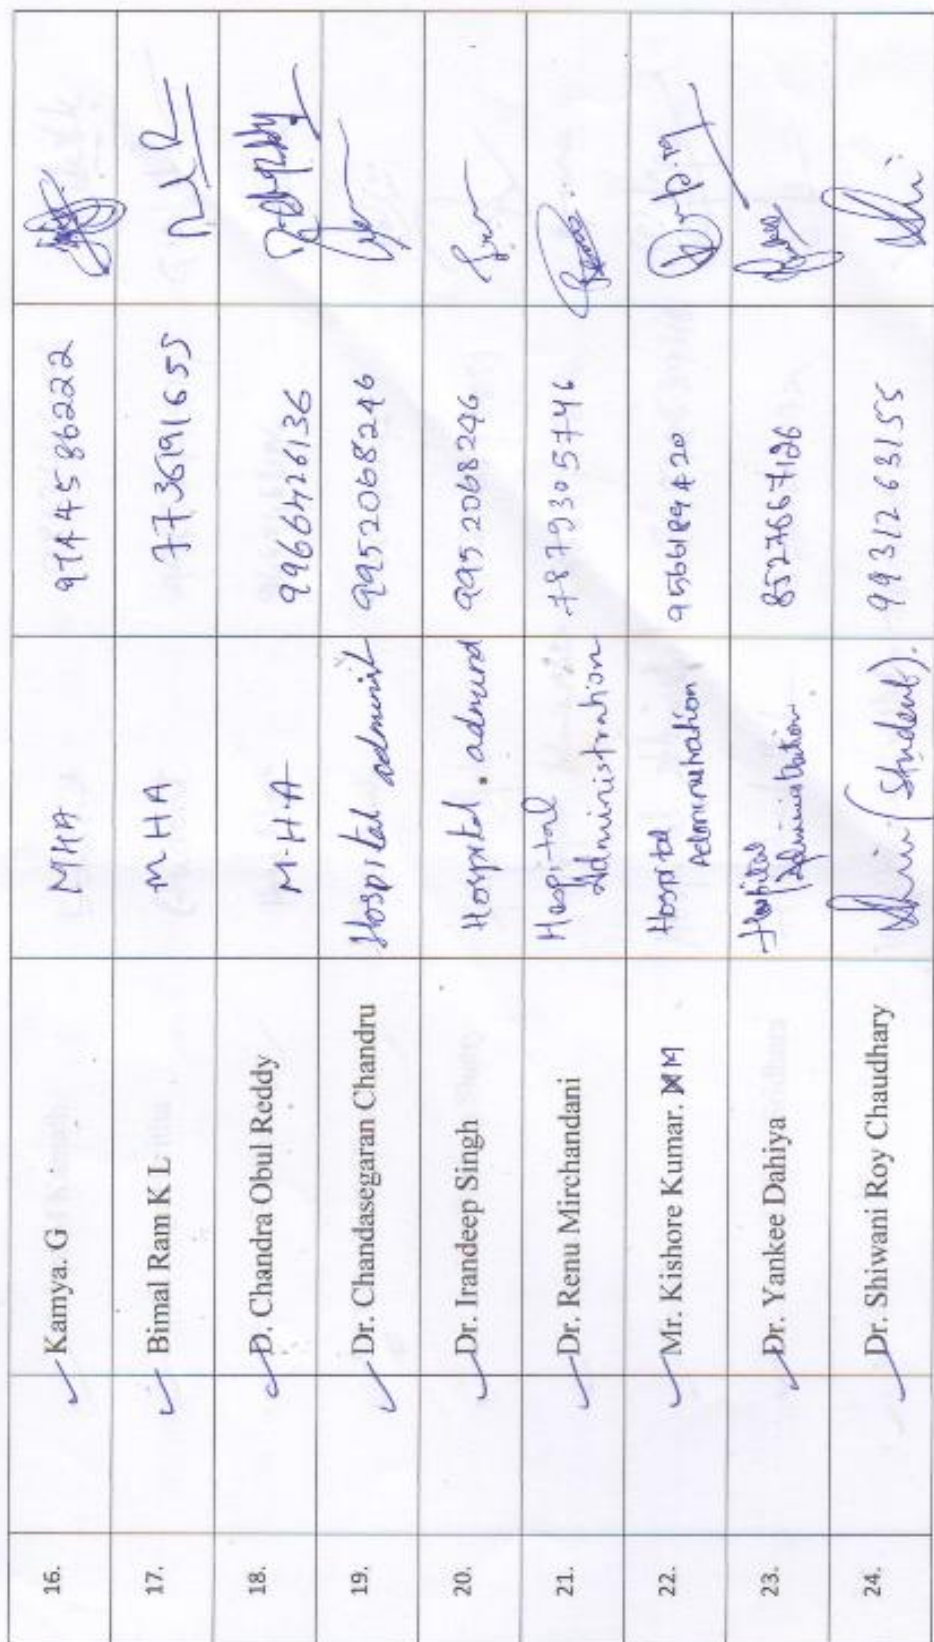 16. Kamya. G MHA 9744586222
17. Bimal Ram K L MHA 7736191655
18. D. Chandra Obul Reddy M.H.A 9966426136
19. Dr. Chandasegaran Chandru Hospital administ 9952068246
20. Dr. Irandeep Singh Hospital. admind 9952068246
21. Dr. Renu Mirchandani Hospital 7879305746
Administration
22. Mr. Kishore Kumar. M Hospital 9566189420
Administration
23. Dr. Yankee Dahiya Hospital 8527667126
Administration
24. Dr. Shiwani Roy Chaudhary (Student). 9931263155